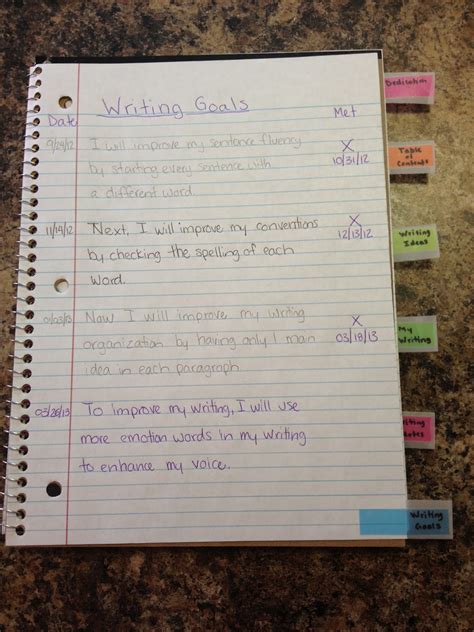 Writing Goals
Date
Met
9/29/12 I will improve my sentence fluency
by starting every sentence with
a different word.
X
10/31/12
11/19/12 Next, I will improve my conventions
by checking the spelling of each
word.
X
12/13/12
Now I will improve my writing
organization by having only 1 main
idea in each paragraph
X
03/18/13
03/20/13 To improve my writing, I will use
more emotion words in my writing
to enhance my voice.
Dedication
Table
of
Contents
Writing
Ideas
My
Writing
Notes
Writing
Goals